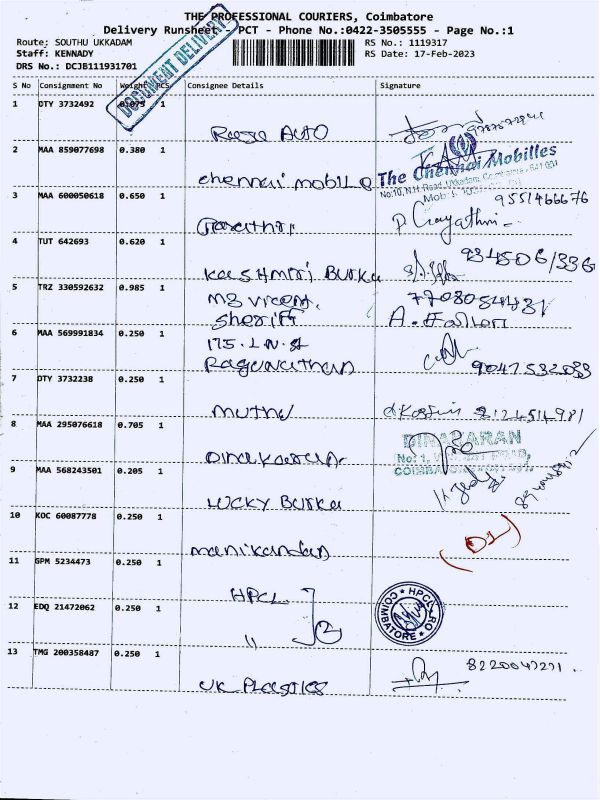 THE PROFESSIONAL COURIERS, Coimbatore
Delivery Runsheet - PCT - Phone No.:0422-3505555 - Page No.:1
Route: SOUTHU UKKADAM RS No.: 1119317
Staff: KENNADY RS Date: 17-Feb-2023
DRS No.: DCJB111931701
DOCUMENT DELIVERY
S No Consignment No Weight PCS Consignee Details Signature
1 DTY 3732492 0.075 1
Auto
2 MAA 859077698 0.380 1
Chennai mobile The Chennai Mobilles
3 MAA 600050618 0.650 1 9551466676
P. Gayathri
4 TUT 642693 0.620 1
Kashmiri Burka 934506/336
5 TRZ 330592632 0.985 1
Sheriff
6 MAA 569991834 0.250 1
175. L.N. St
Ragunathan 9047532033
7 DTY 3732238 0.250 1
Muthu 8124514981
8 MAA 295076618 0.705 1 DINAKARAN
Dinakaran
9 MAA 568243501 0.205 1
Lucky Burka
10 KOC 60087778 0.250 1
Manikandan (D1)
11 GPM 5234473 0.250 1
HPCL HPCL-RO COIMBATORE
12 EDQ 21472062 0.250 1
"
13 TMG 200358487 0.250 1 8220047271.
UK Plastics